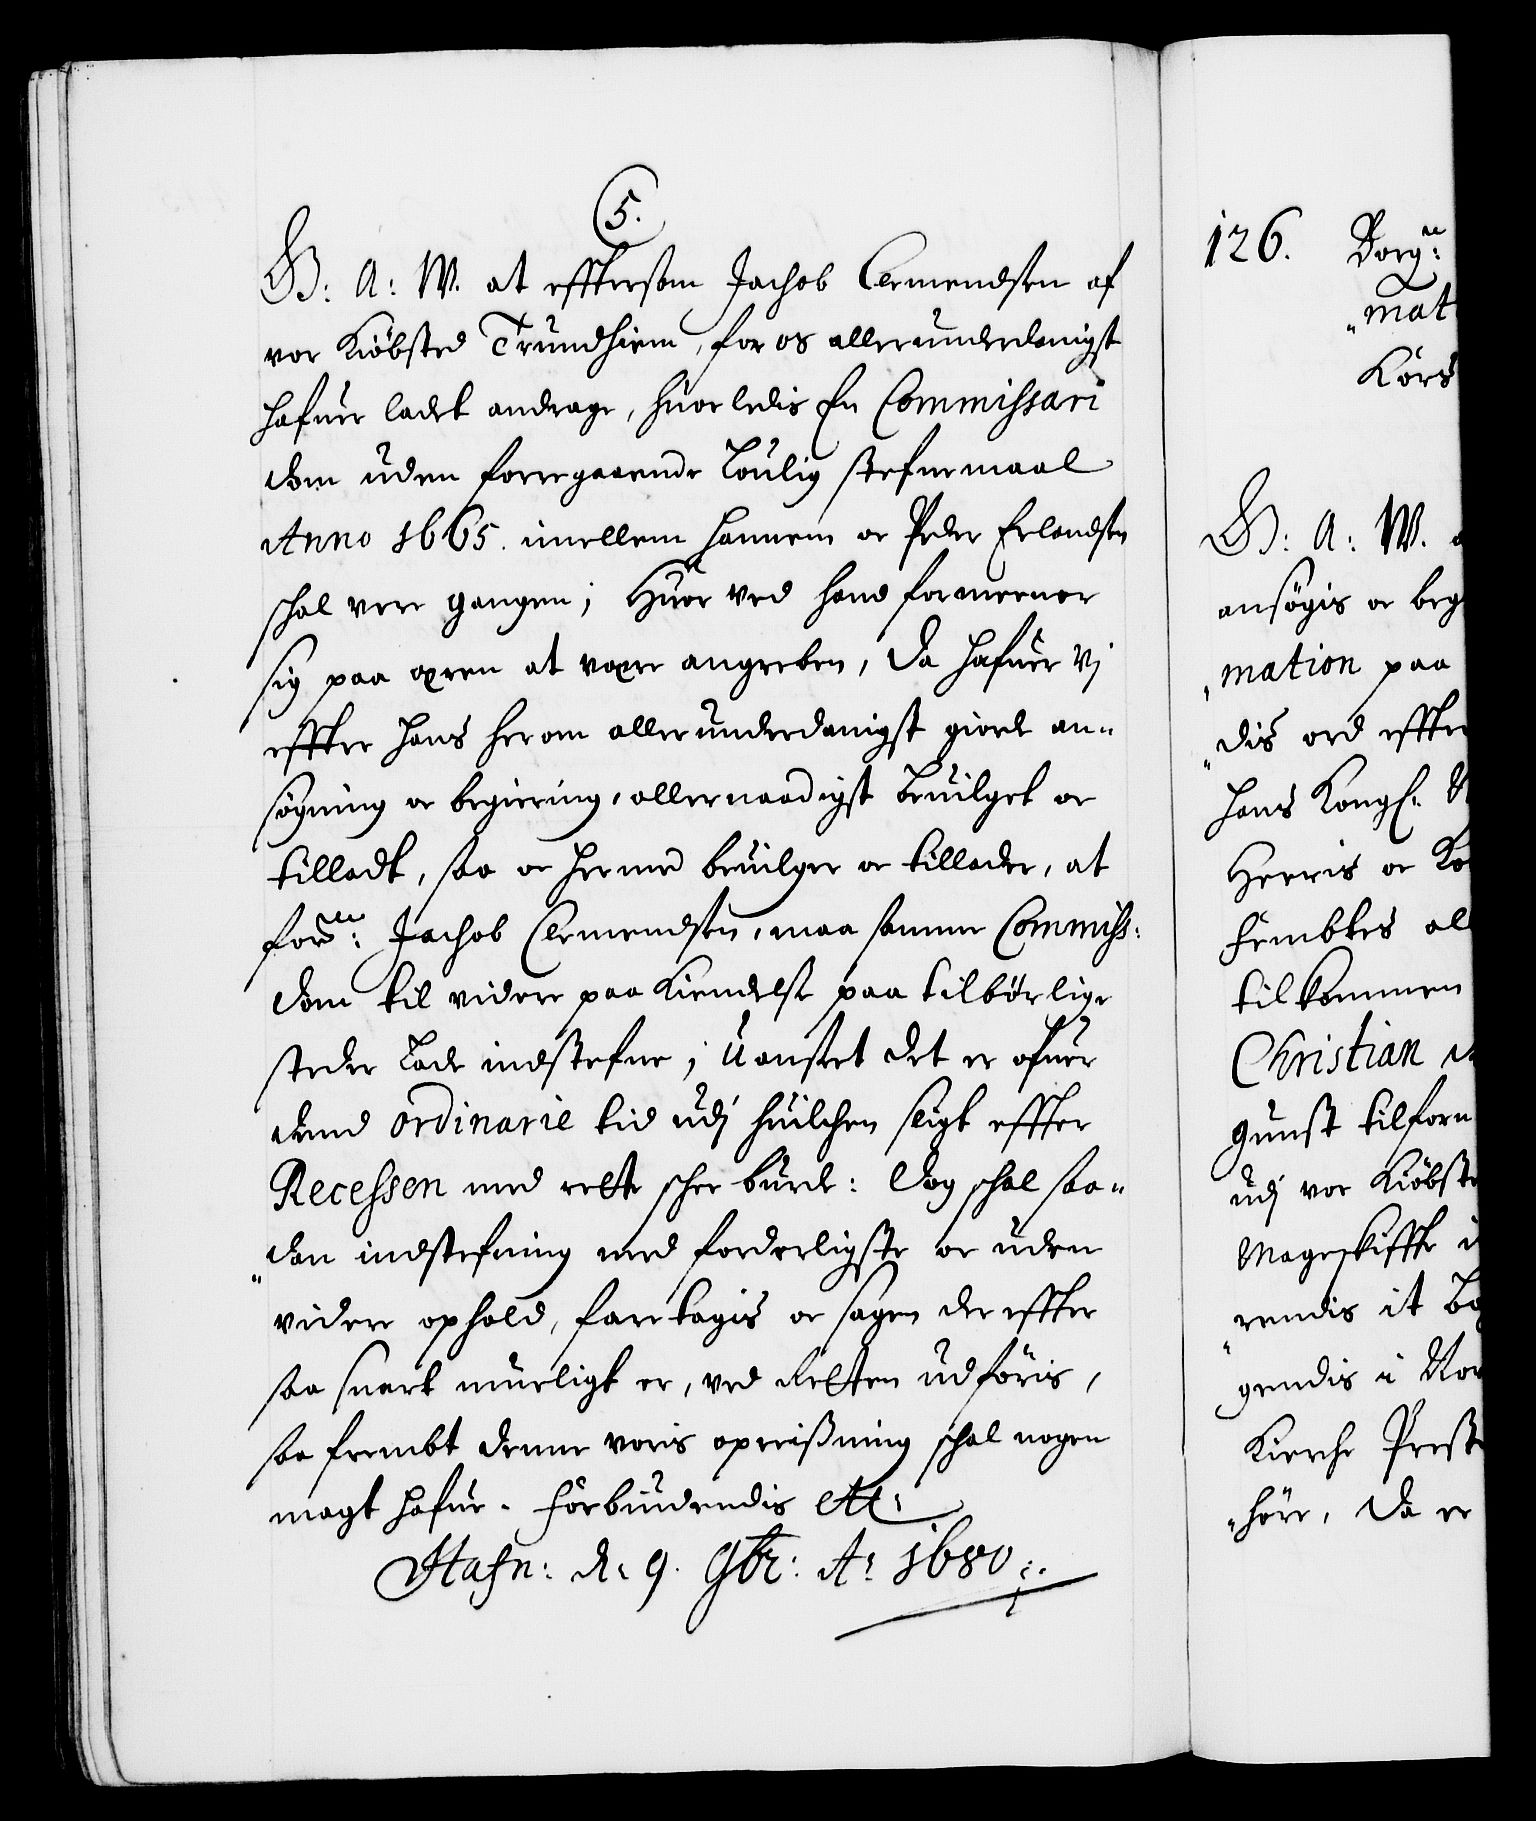 5.
G: A: W. at effttersom Jachob Clemendsen af
vor Kiöbsted Trundhiem, for os allerunderdanigst
hafuer ladet andrage, huorledis En Commissari
dom uden foregaaende Loulig stefnemaal
Anno 1665. imellem hannem oc Peder Erlandsen
schal vere gangen; Huor ved hand formeener
sig paa æren at være angreben, Da hafuer Vj
effter hans herom allerunderdanigst giorde an-
søgning oc begiering, allernaadigst beuilget oc
tilladt, saa oc hermed beuilger oc tillader, at
forne: Jachob Clemendsen, maa samme Commiss:
dom til videre paa Kiendelse paa tilbörlige
steder Lade indstefne; Uanseet det er ofuer
dend ordinarie tid udj huilchen sligt effter
Recessen med rette schee burde: Dog schal saa-
dan indstefning med forderligste oc uden
videre ophold, foretagis oc sagen der effter
saa snart mueligt er, ved Retten udföris,
saa frembt denne voris opreisning schal nogen
magt hafue. Forbiudendis etc:
Hafn: d. 9. 9br: Ao 1680.
126. Borgn:
mat
Körs
G: A: W. a
ansögis oc beg
mation paa
dis ord effter
hans Kongl. M
Herris oc Ko
Fembtes al
tilkommen
Christian d
gunst tilforn
udj vor Kiöbste
Mageskiffte i
rendis it Bo
gendis i Nor
Kierche Preste
höre, Da er